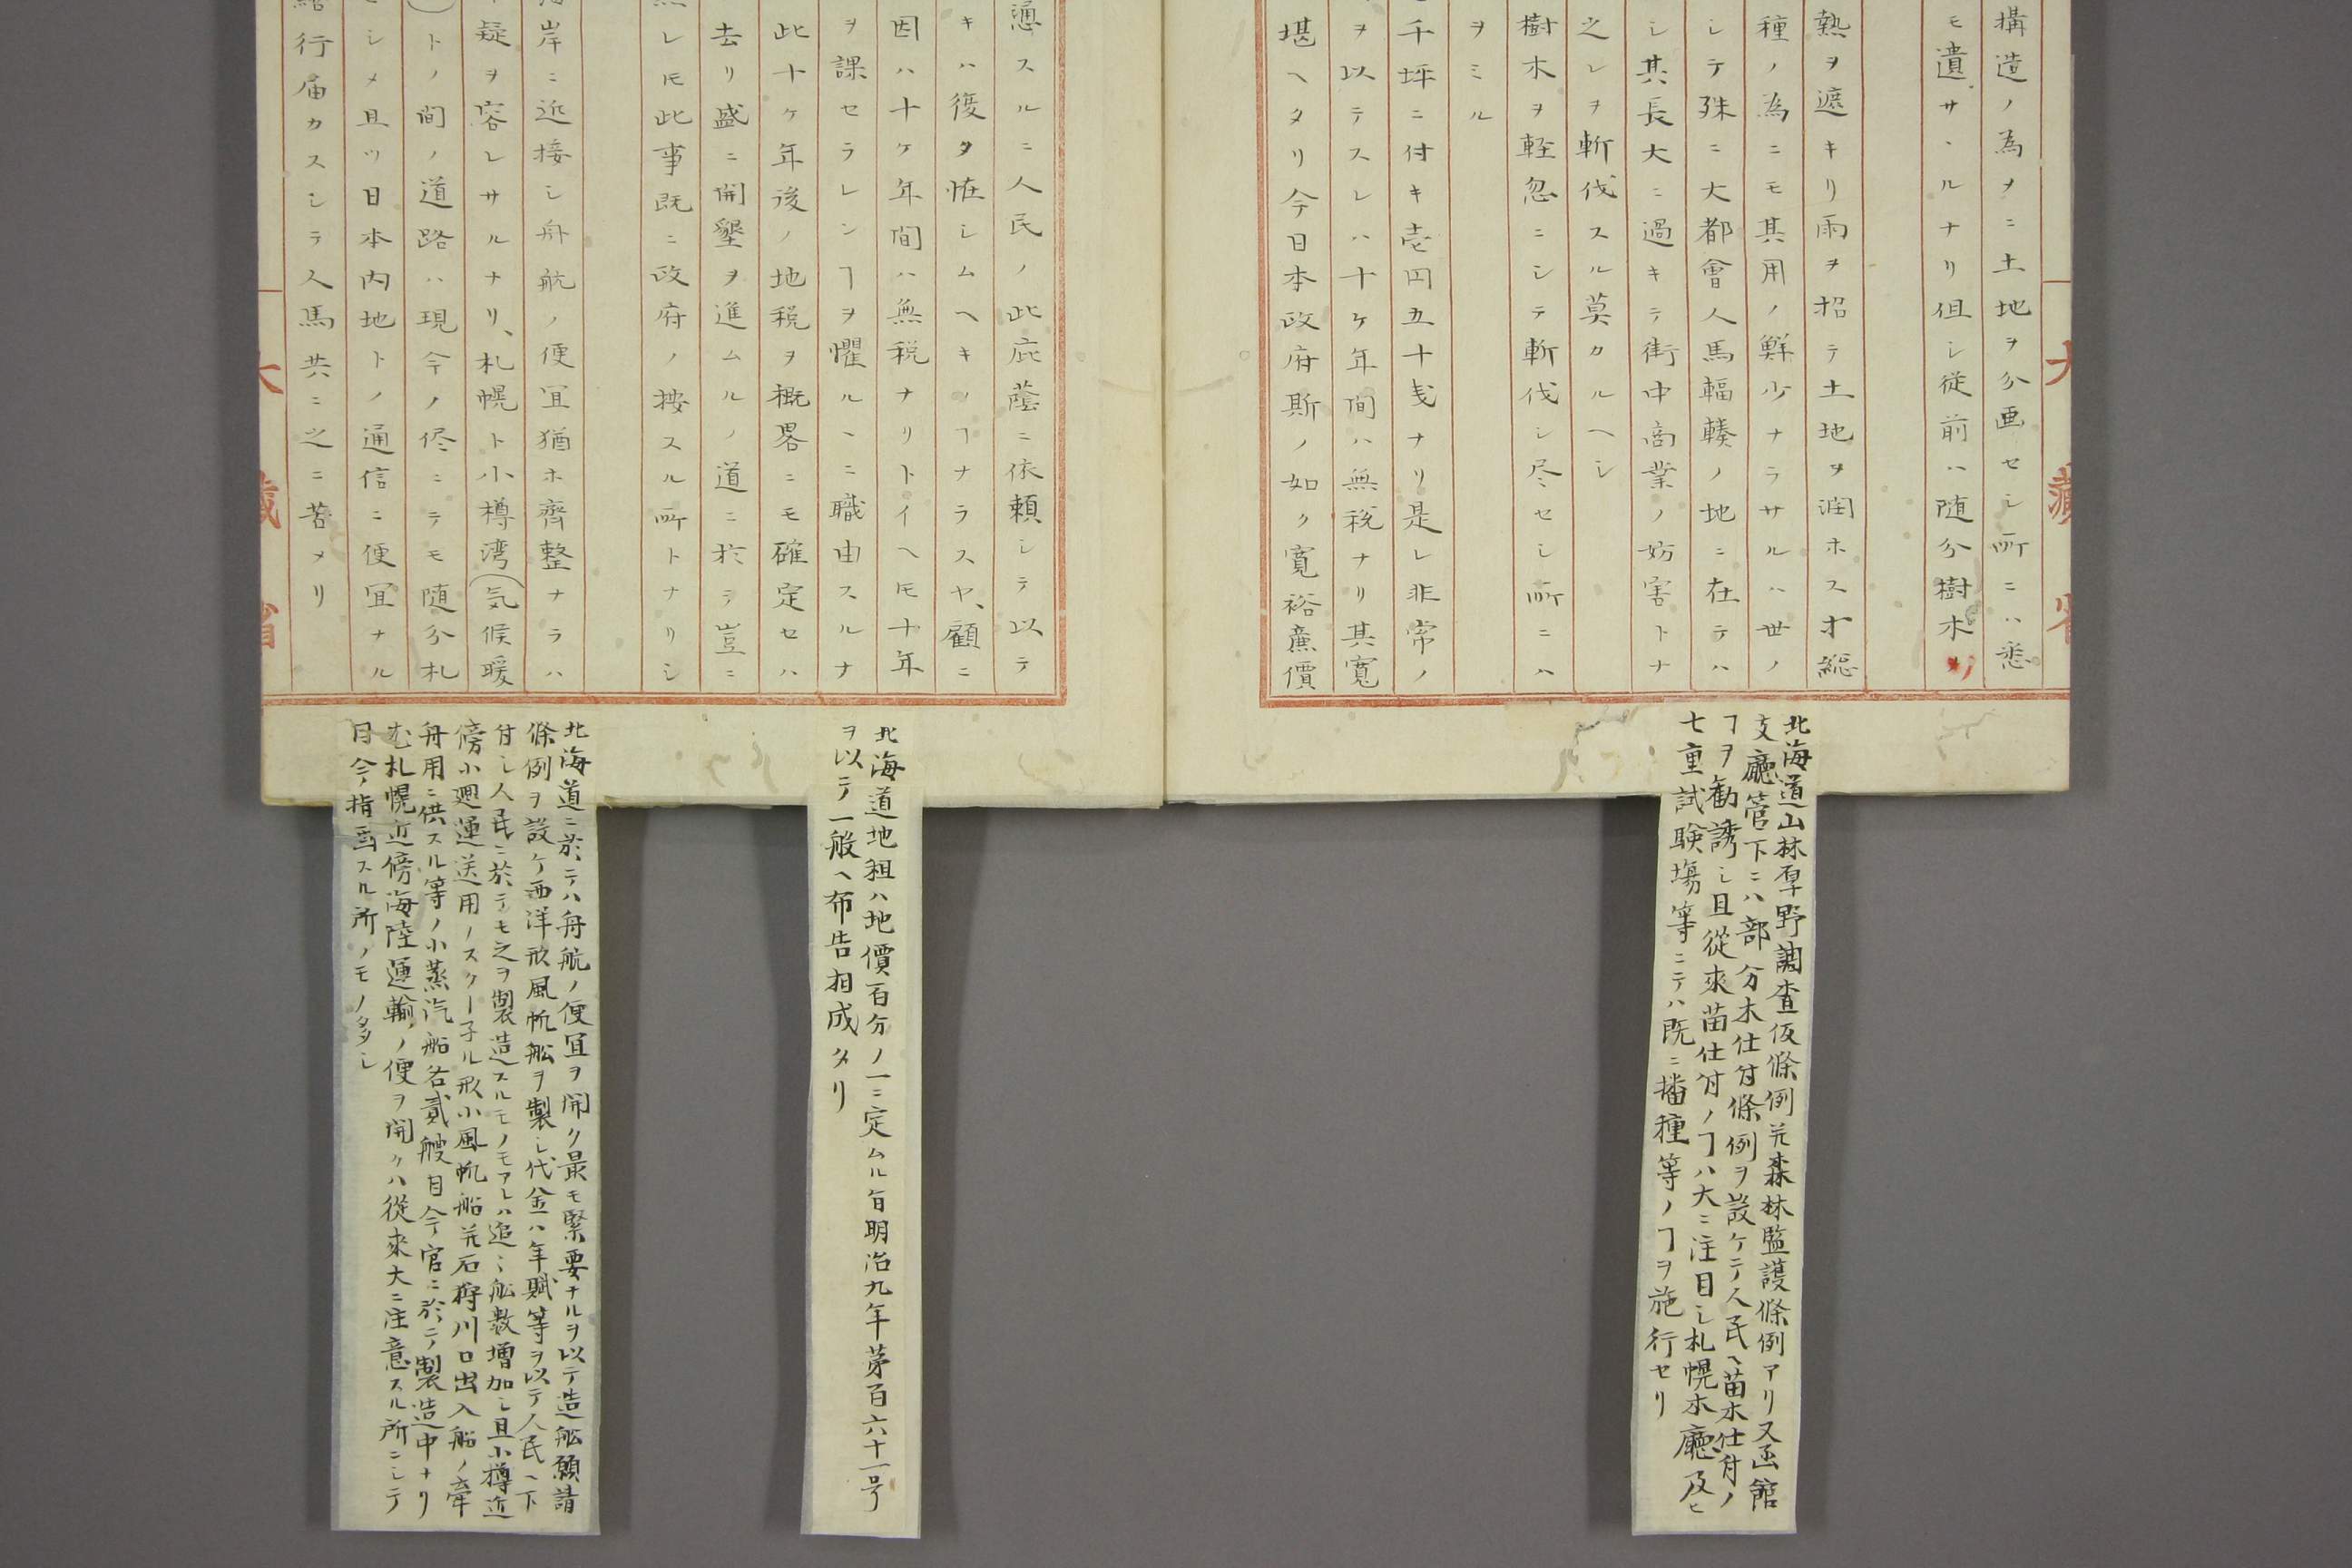 構造ノ為メニ土地ヲ分画セシ所ニハ悉
モ遺サヽルナリ但シ従前ハ随分樹木
熱ヲ遮キリ雨ヲ招テ土地ヲ潤ホス才総
種ノ為ニモ其用ノ鮮少ナラサルハ世ノ
シテ殊ニ大都會人馬輻輳ノ地ニ在テハ
シ其長大ニ過キテ街中商業ノ妨害トナ
之レヲ斬伐スル莫カルヘシ
樹木ヲ軽忽ニシテ斬伐シ尽セシ所ニハ
ヲミル
千坪ニ付キ壱円五十戋ナリ是レ非常ノ
ヲ以テスレハ十ケ年間ハ無税ナリ其寛
堪ヘタリ今日本政府斯ノ如ク寛裕廉價
大藏省
慂スルニ人民ノ此庇蔭ニ依頼シテ以テ
キハ復タ恠シムヘキノヿナラスヤ、顧ニ
因ハ十ケ年間ハ無税ナリトイヘ𪜈十年
ヲ課セラレンヿヲ懼ルヽニ職由スルナ
此十ケ年後ノ地税ヲ概畧ニモ確定セハ
去リ盛ニ開墾ヲ進ムルノ道ニ於テ豈ニ
レ𪜈此事既ニ政府ノ按スル所トナリシ
岸ニ近接シ舟航ノ便宜猶ホ齊整ナラハ
疑ヲ容レサルナリ、札幌ト小樽湾(気候暖
)トノ間ノ道路ハ現今ノ侭ニテモ随分札
シメ且ツ日本内地トノ通信ニ便宜ナル
行届カスシテ人馬共ニ之ニ苦メリ
大藏省
北海道山林原野調査仮條例並森林監護條例アリ又函館
支廳管下ニハ部分木仕付條例ヲ設ケテ人民ヘ苗木仕付ノ
ヿヲ勧誘シ且從來苗仕付ノヿハ大ニ注目シ札幌本廳及ヒ
七重試験場等ニテハ既ニ播種等ノヿヲ施行セリ
北海道地租ハ地價百分ノ一ニ定ムル旨明治九年第百六十一号
ヲ以テ一般ヘ布告相成タリ
北海道ニ於テハ舟航ノ便宜ヲ開ク最モ緊要ナルヲ以テ造舩願請
條例ヲ設ケ西洋形風帆舩ヲ製シ代金ハ年賦等ヲ以テ人民ヘ下
付シ人民ニ於テモ之ヲ製造スルモノモアレハ追〻舩数増加シ且小樽近
傍小廻運送用ノスクー子ル形小風帆船並石狩川口出入船ノ牽
舟用ニ供スル等ノ小蒸汽船各貳艘目今官ニ於テ製造中ナリ
札幌近傍海陸運輸ノ便ヲ開クハ從來大ニ注意スル所ニシテ
目今指画スル所ノモノ多シ